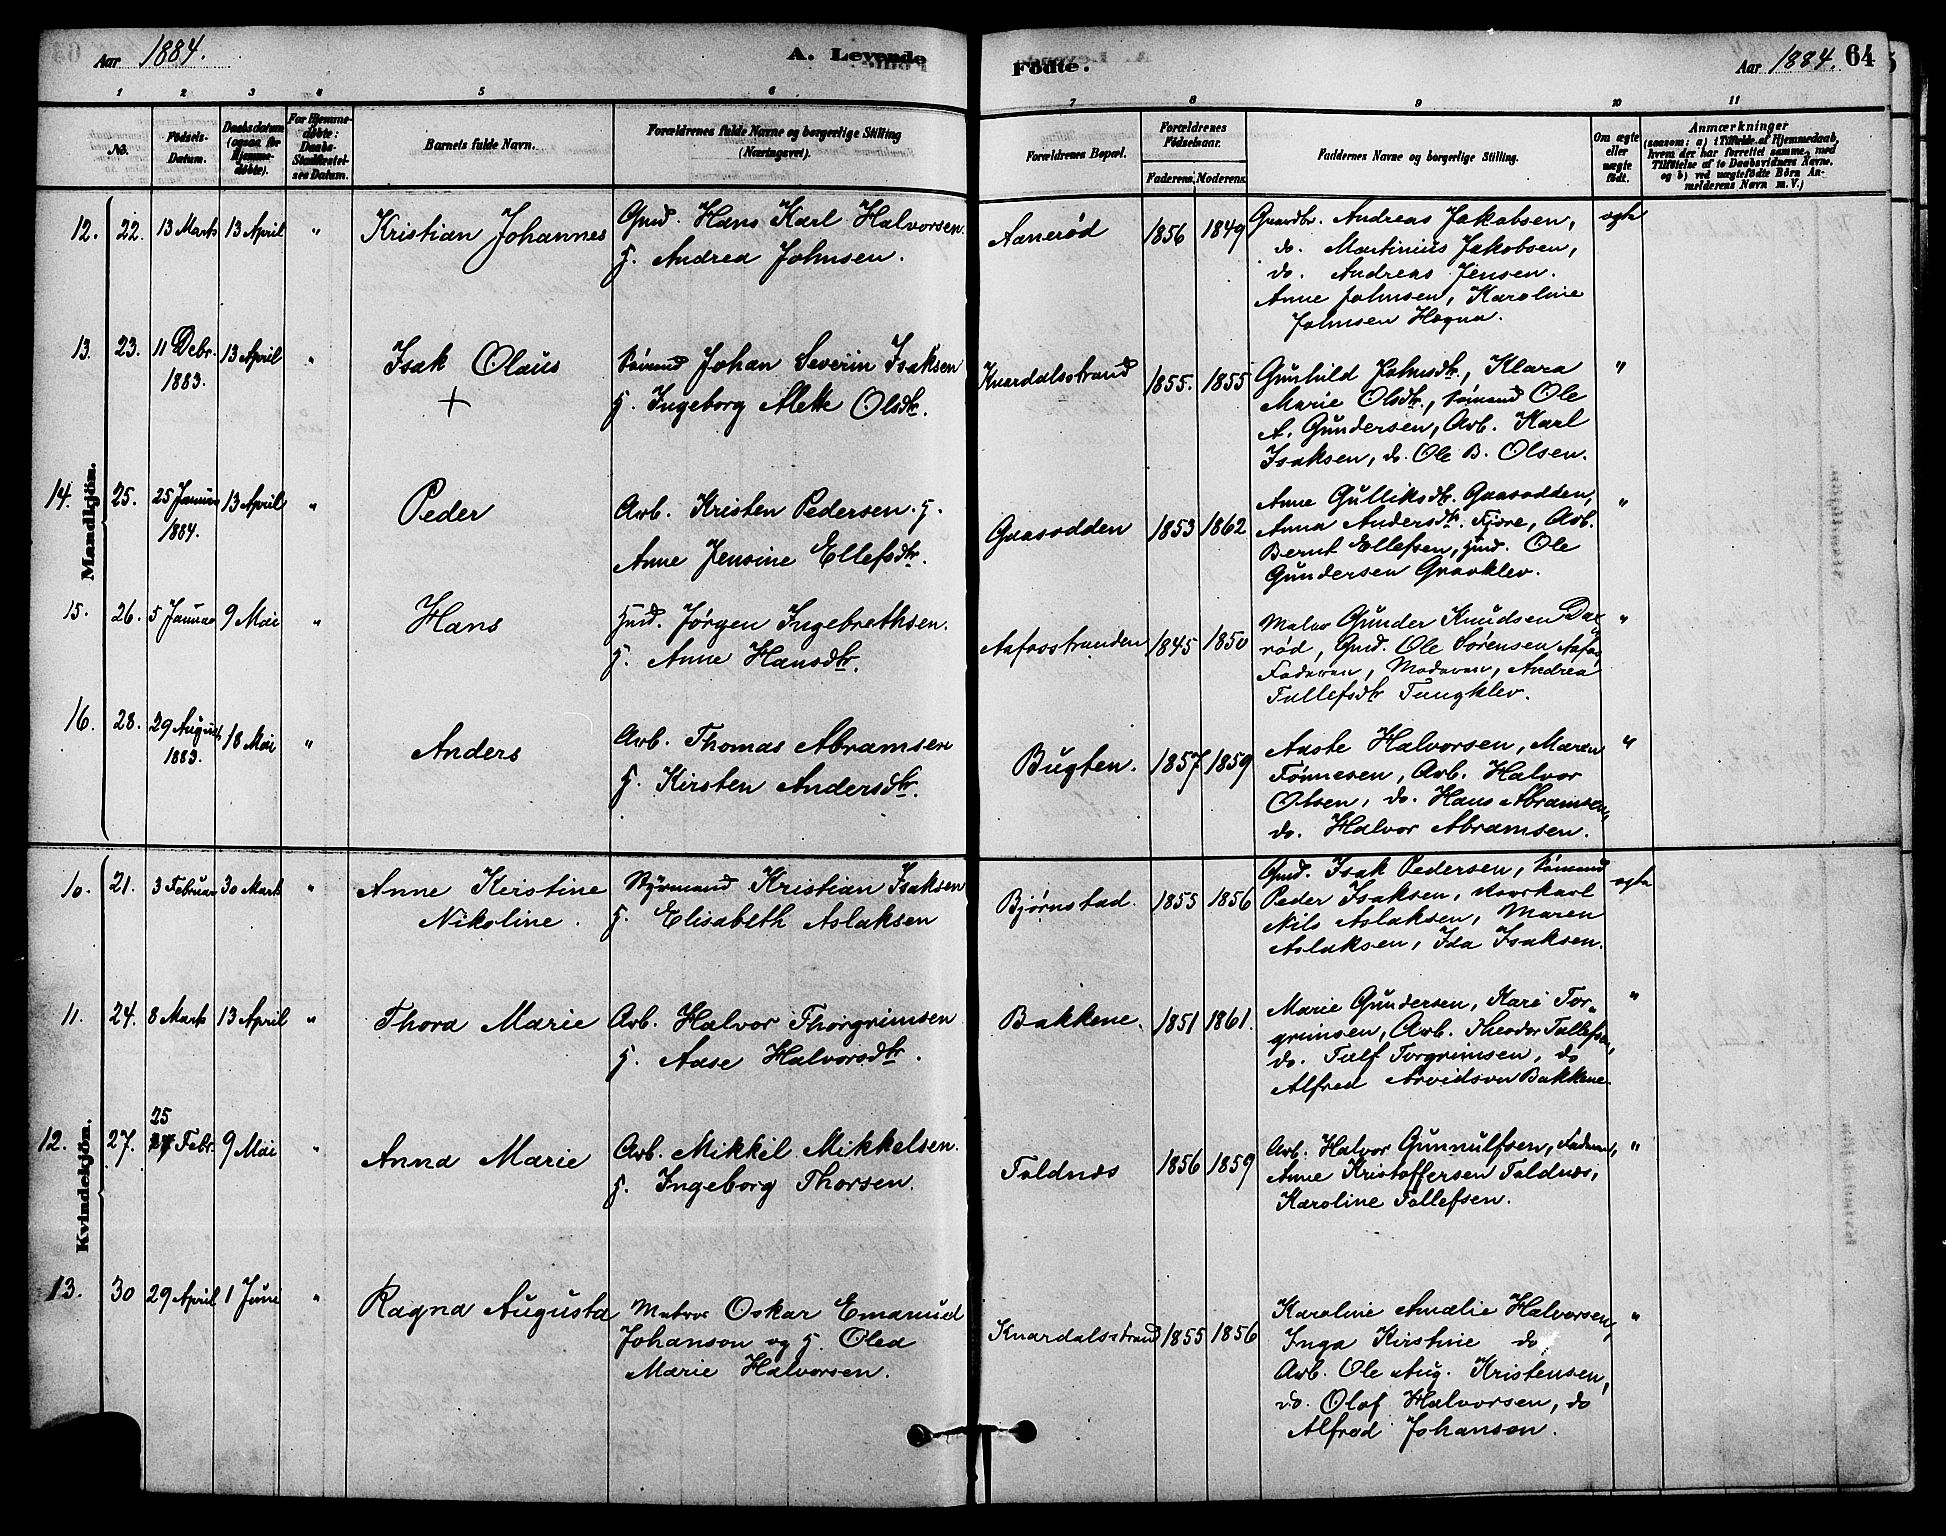 Aar 1884. A. Levende
Födte. Aar 1884. 64
1 2 3 4 5 6 7 8 9 10 11
No. Födsels-Datum. Daabsdatum (ogsaa for Hjemmedöbte). For Hjemmedöbte: Daabs-Stadfæstelses Datum. Barnets fulde Navn. Forældrenes fulde Navne og borgerlige Stilling (Næringsvei).
Forældrenes Bopæl. Forældrenes Födselsaar. Faderens. Moderens. Faddernes Navne og borgerlige Stilling. Om ægte eller uægte födt. Anmærkninger (saasom: a) i Tilfælde af Hjemmedaab, hvem der har forrettet samme, med Tilföielse af to Daabsvidners Navne, og b) ved uægtefödte Börn Anmelderens Navn m. V.)
Mandkjön.
12. 22. 13 Marts 13 April " Kristian Johannes Gmd. Hans Karl Halvorsen.
H. Andrea Johnsen.
Aanerød 1856 1849 Gaardbr. Andreas Jakobsen, ægte
do. Martinius Jakobsen,
do. Andreas Jensen.
Anne Johnsen, Karoline
Johnsen Hogna.
13. 23. 11 Debr. 1883. 13 April " Isak Olaus + Sömand Johan Severin Isaksen
H. Ingeborg Alette Olsdtr.
Knardalsstrand 1855. 1855 Gunhild Johnsdtr, Klara "
Marie Olsdtr., Sömand Ole
A. Gundersen, Arb. Karl
Isaksen, do. Ole B. Olsen.
14. 25. 25 Januar 1884. 13 April " Peder Arb. Kristen Pedersen. H.
Anne Jensine Ellefsdtr.
Gaasodden 1853 1862 Anne Gulliksdtr. Gaasodden, "
Anna Andersdtr. Fjære, Arb.
Bernt Ellefsen, Hmd. Ole
Gundersen Gravklev.
15. 26. 5 Januar 9 Mai " Hans Hmd. Jørgen Ingebrethsen.
H. Anne Hansdtr.
Aafosstranden 1845 1850 Maler Gunder Knudsen Dal- "
rød, Gmd. Ole Sørensen Aafos,
Faderen, Moderen, Andrea
Tollefsdtr Tungklev.
16. 28. 29 August 1883. 18 Mai " Anders Arb. Thomas Abramsen
H. Kirsten Andersdtr.
Bugten. 1857 1859 Aaste Halvorsen, Maren "
Tönnesen, Arb. Halvor
Olsen, do. Hans Abramsen,
do. Halvor Abramsen.
Kvindekjön.
10. 21. 3 Februar 30 Marts " Anne Kerstine Nikoline. Styrmand Kristian Isaksen
H. Elisabeth Aslaksen
Bjørnstad. 1855 1856 Gmd. Isak Pedersen, Sömand ægte
Peder Isaksen,
Nils Aslaksen, Maren
Aslaksen, Ida Isaksen.
11. 24. 8 Marts 13 April " Thora Marie Arb. Halvor Thorgrimsen
H. Aase Halvorsdtr.
Bakkene. 1851 1861. Marie Gundersen, Kari Tor- "
grimsen, Arb. Theodor Tollefsen,
do. Tolf Torgrimsen, do
Alfred Arvidson Bakkene.
12. 27. 25 Febr. 9 Mai " Anna Marie Arb. Mikkil Mikkelsen.
H. Ingeborg Thorsen.
Toldnæs 1856 1859 Arb. Halvor Gunnulfsen, Faderen, "
Anne Kristoffersen Toldnæs,
Karoline Tollefsen.
13. 30 29 April 1 Juni " Ragna Augusta Matros Oskar Emanuel
Johanson og H. Olea
Marie Halvorsen.
Knardalsstrand 1855 1856 Karoline Amalie Halvorsen, "
Inga Kirstine do,
Arb. Ole Aug. Kristensen,
do. Olaf Halvorsen, do
Alfred Johanson.